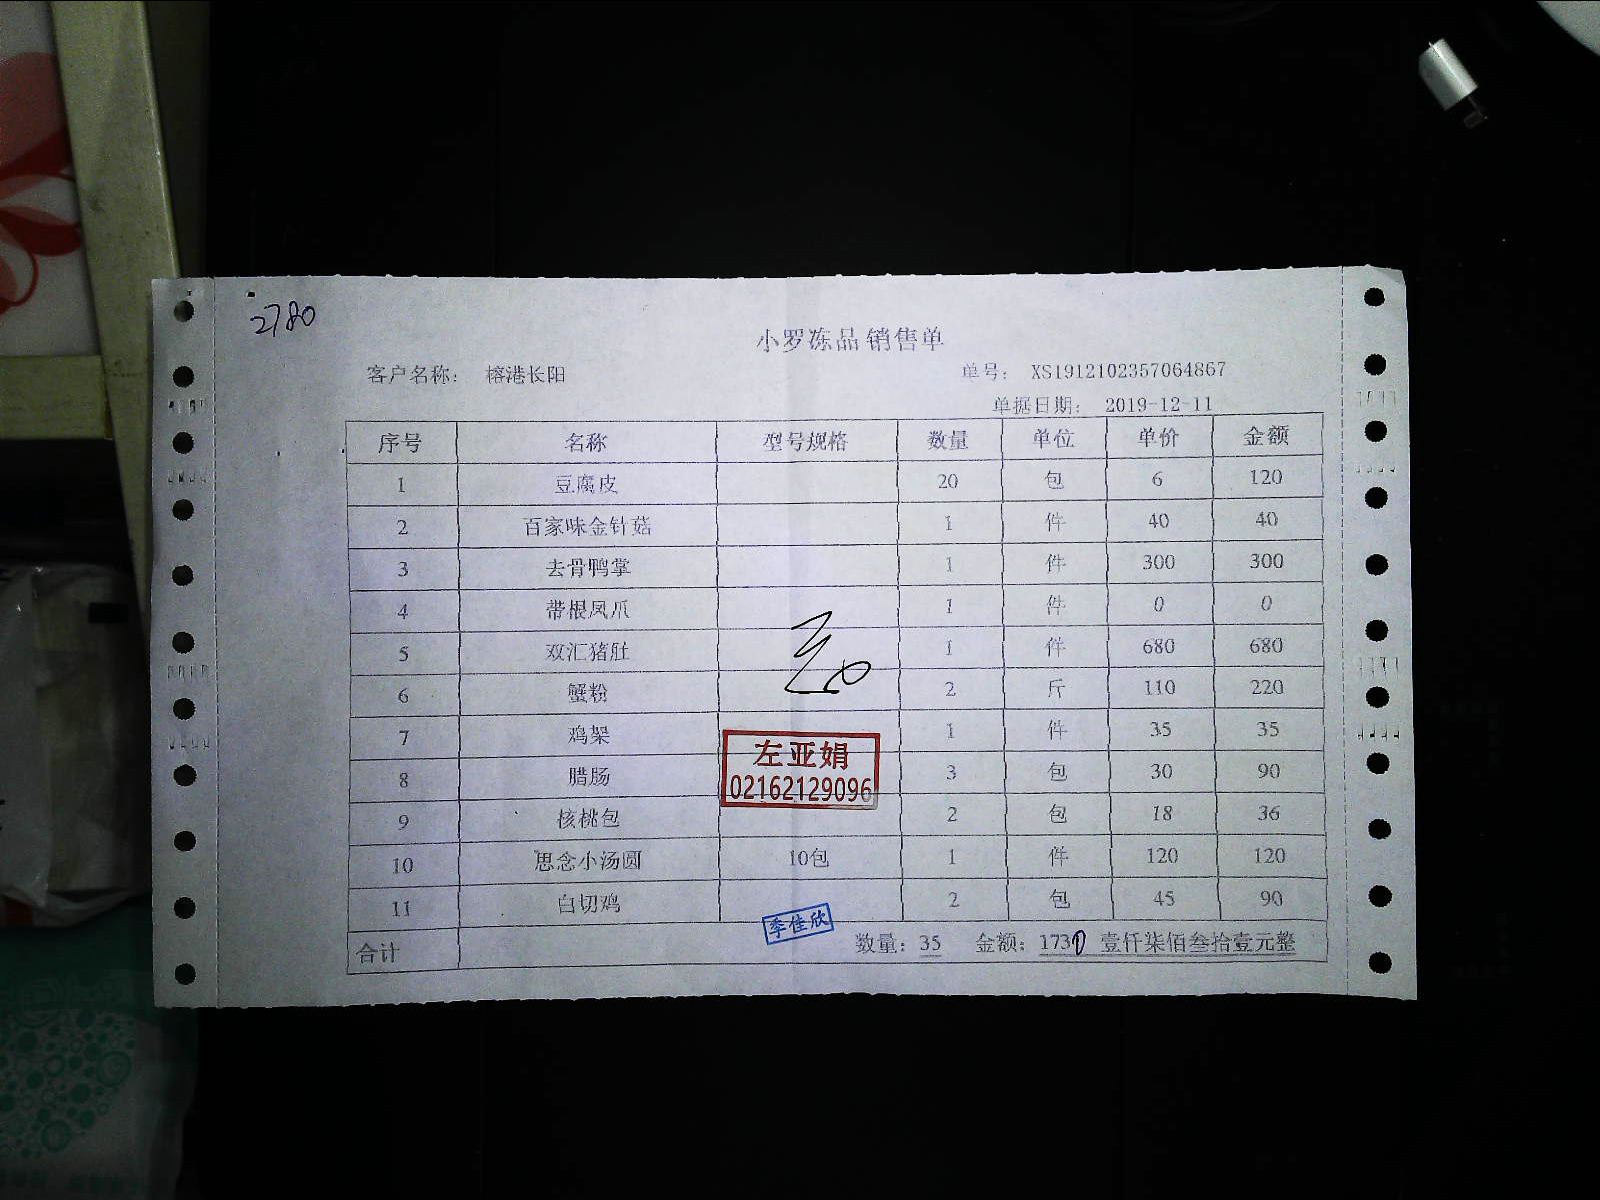 2780
小罗冻品 销售单
客户名称： 榕港长阳 单号： XS1912102357064867
单据日期： 2019-12-11
序号 名称 型号规格 数量 单位 单价 金额
1 豆腐皮 20 包 6 120
2 百家味金针菇 1 件 40 40
3 去骨鸭掌 1 件 300 300
4 带根凤爪 1 件 0 0
5 双汇猪肚 1 件 680 680
6 蟹粉 2 斤 110 220
7 鸡架 1 件 35 35
左亚娟
8 腊肠 3 包 30 90
02162129096
9 核桃包 2 包 18 36
10 思念小汤圆 10包 1 件 120 120
11 白切鸡 2 包 45 90
季佳欣
合计 数量：35 金额：1731 壹仟柒佰叁拾壹元整